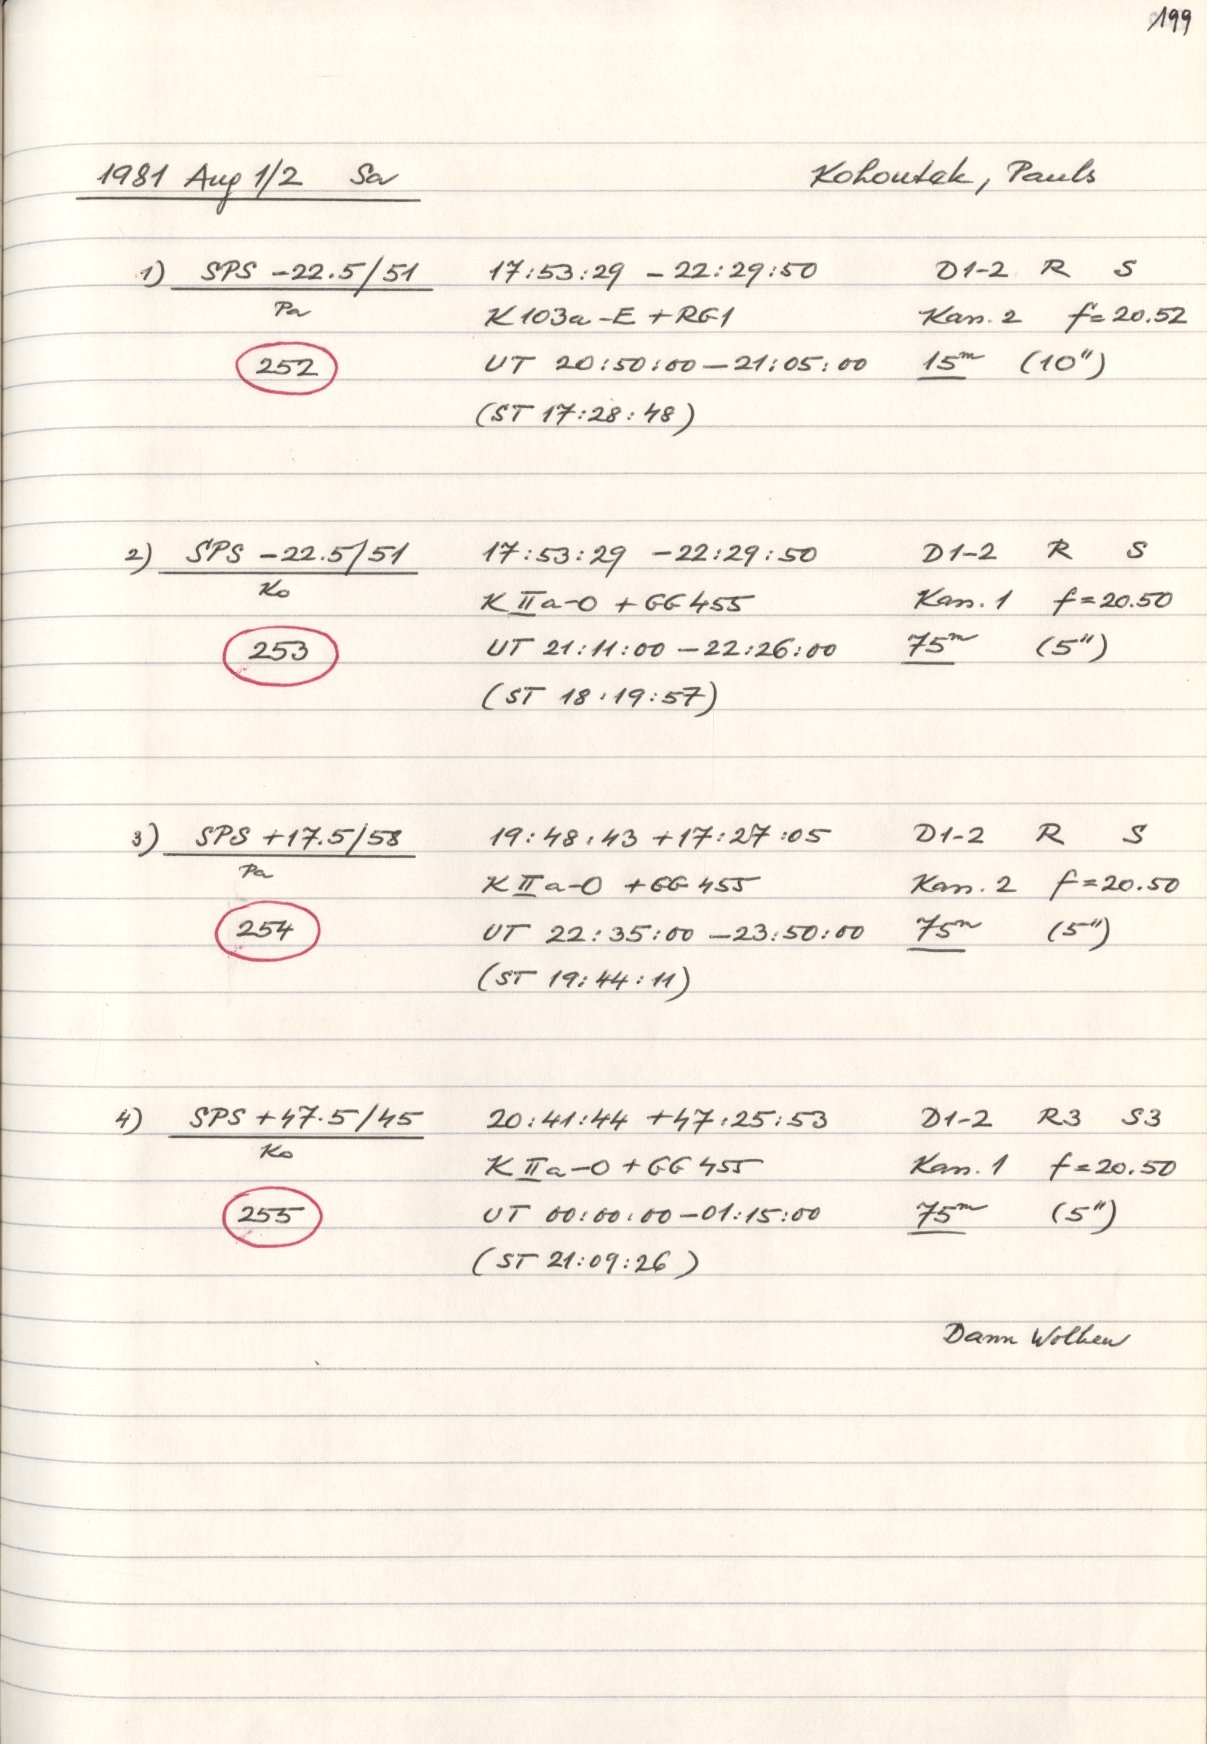 199
1981 Aug 1/2 Sa Kohoutek, Pauls
1) SPS -22.5/51 17:53:29 -22:29:50 D1-2 R S
Pa K103a-E + RG1 Kas. 2 f=20.52
252 UT 20:50:00 - 21:05:00 15m (10")
(ST 17:28:48)
2) SPS -22.5/51 17:53:29 -22:29:50 D1-2 R S
Ko K IIa-O + GG455 Kas. 1 f=20.50
253 UT 21:11:00 - 22:26:00 75m (5")
(ST 18:19:57)
3) SPS +17.5/58 19:48:43 +17:27:05 D1-2 R S
Pa K IIa-O + GG455 Kas. 2 f=20.50
254 UT 22:35:00 - 23:50:00 75m (5")
(ST 19:44:11)
4) SPS +47.5/45 20:41:44 +47:25:53 D1-2 R3 S3
Ko K IIa-O + GG455 Kas. 1 f=20.50
255 UT 00:00:00 - 01:15:00 75m (5")
(ST 21:09:26)
Dann Wolken